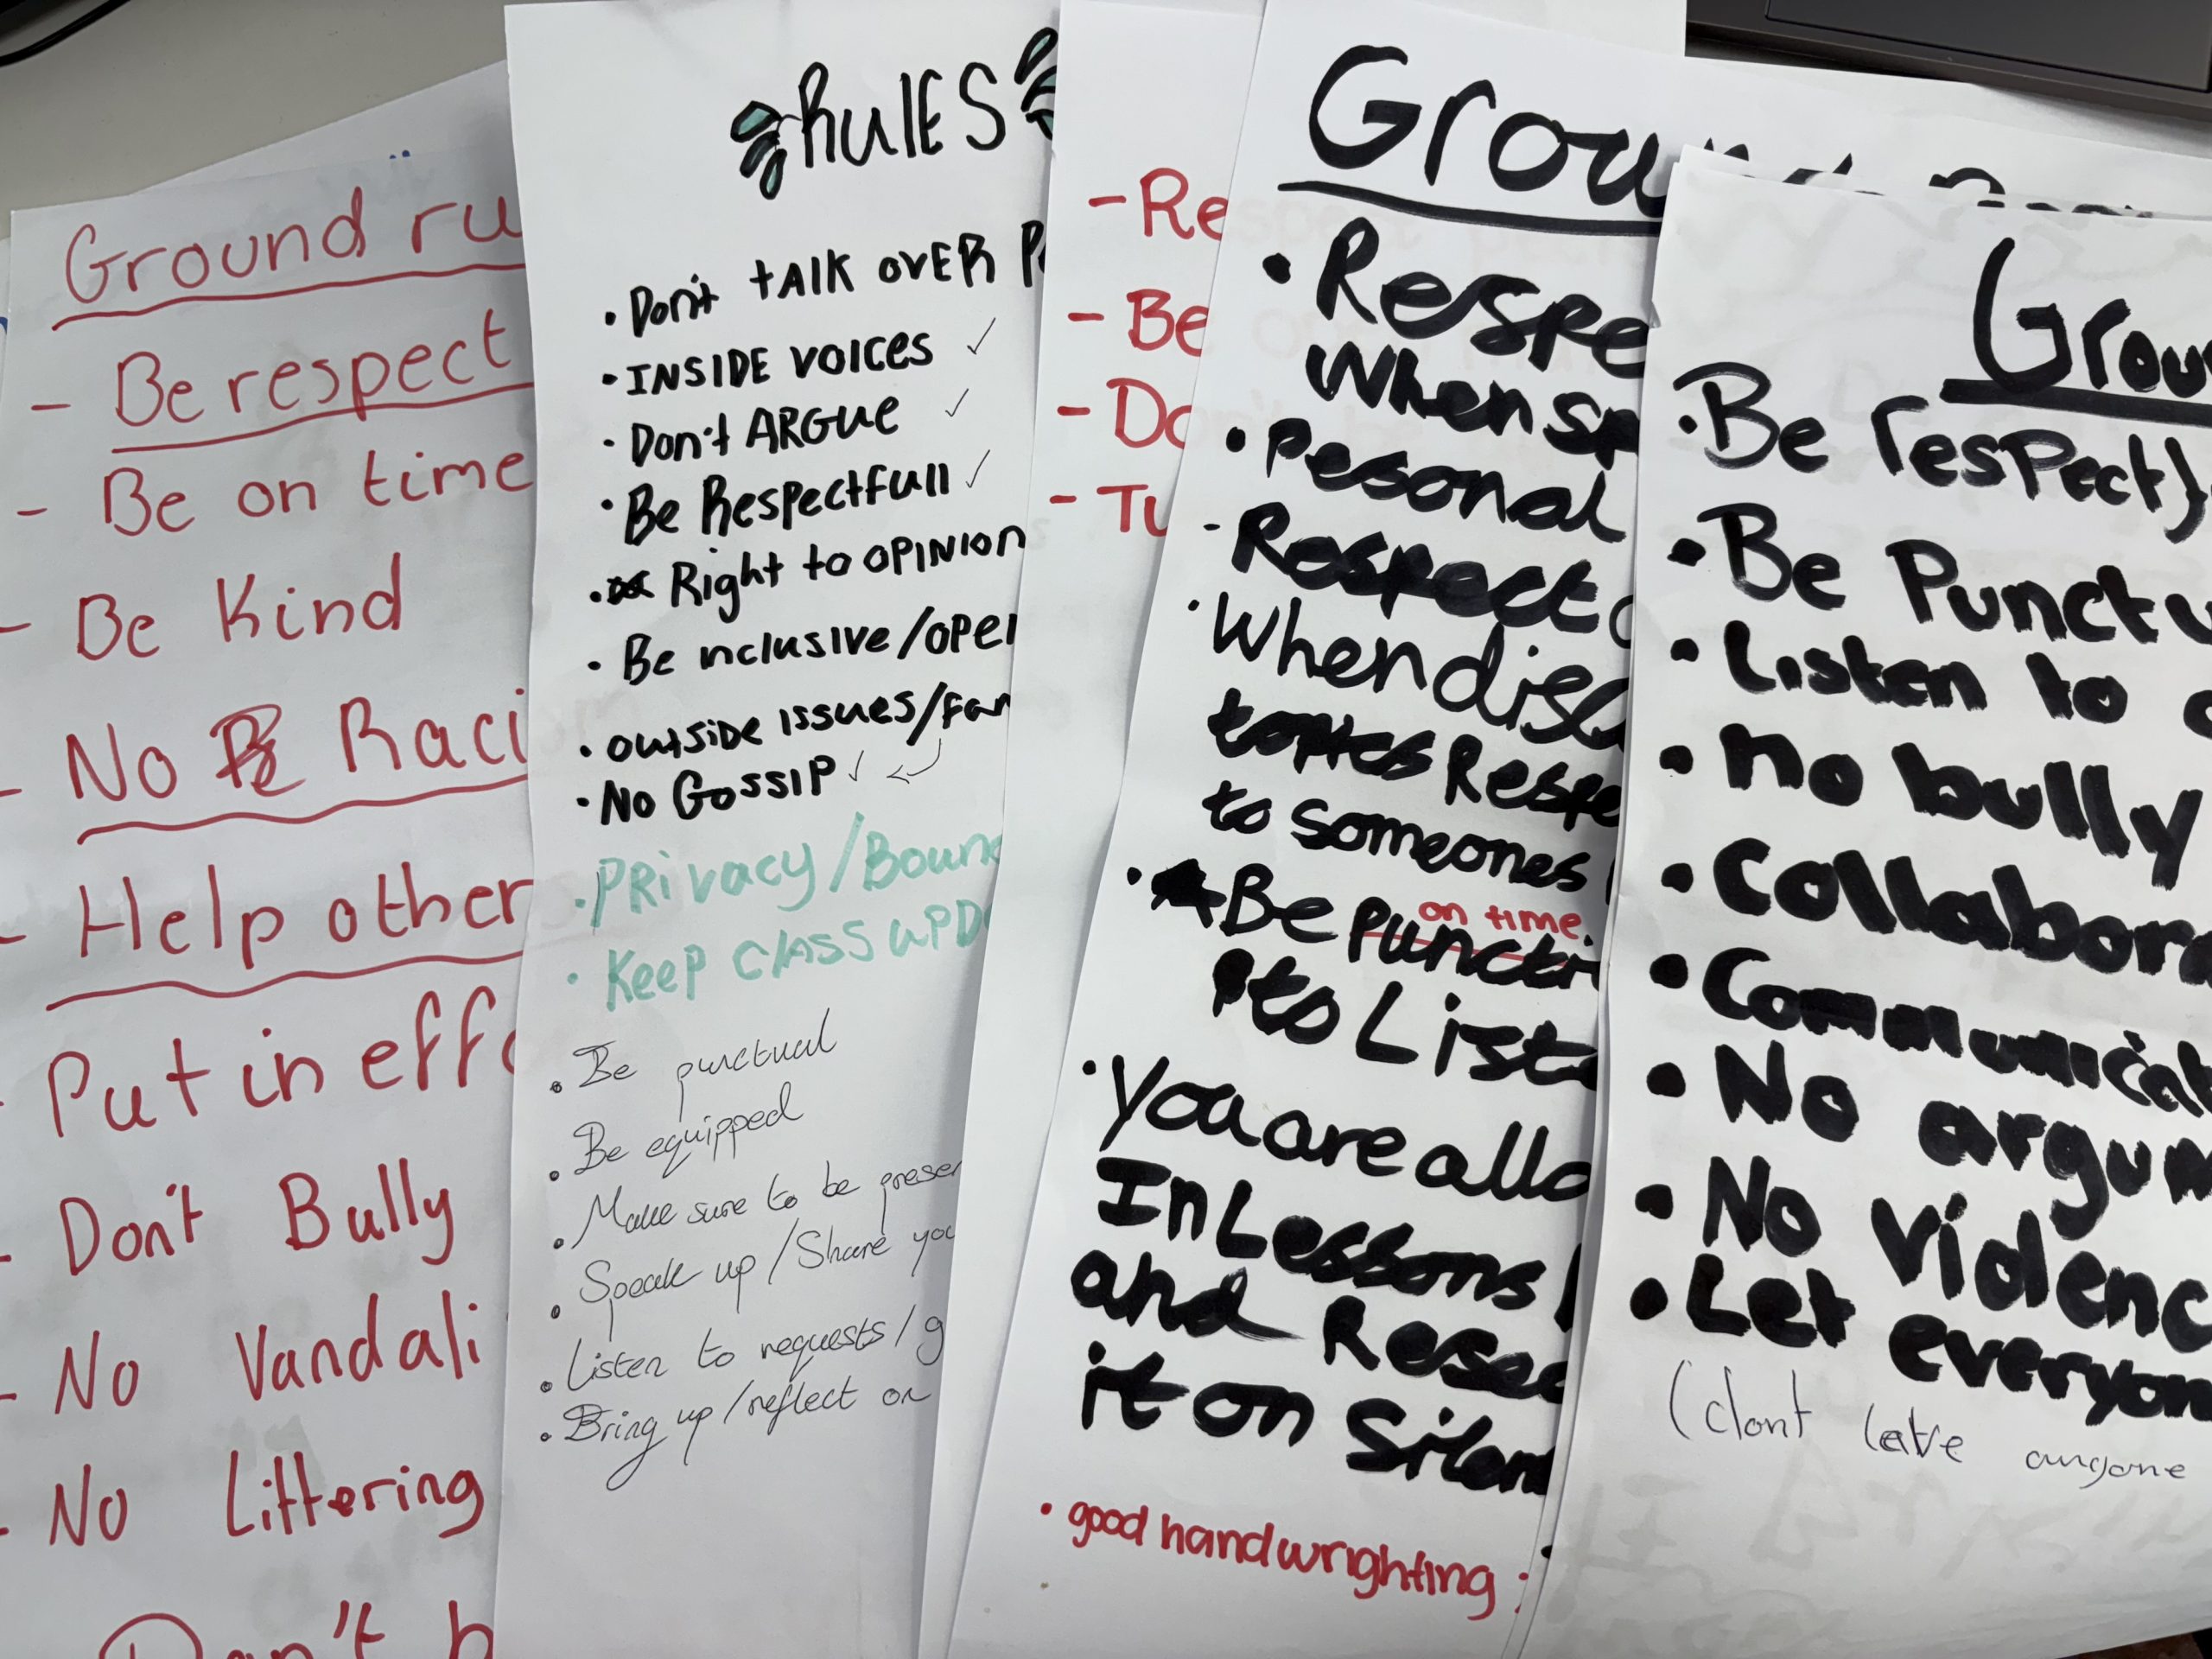 Ground ru
- Be respect
- Be on time
- Be Kind
- No Raci
- Help other
- Put in effo
- Don't Bully
- No Vandali
- No Littering
Don't b
RulES
• Don't tAlK ovER P
• INSIDE voIces ✓
• Don't ARGue ✓
• Be RespectFull ✓
• Right to OPINION
• Be inclusive/open
• outside issues/fam
• No GossIP ✓
• PRivacy/Bound
• Keep clASS uPDa
• Be punctual
• Be equipped
• Make sure to be presen
• Speak up/Share you
• Listen to requests/g
• Bring up/reflect on
- Re
- Be
- Do
- Tu
Grou
• Respe
When sp
• Pesonal
- Respect
• When disc
Respe
to someones
on time.
• Be Punct
to List
• You are allo
In Lessons
and Resea
it on Silen
• good handwrighting
Grou
• Be respectf
• Be Punctu
• Listen to
• no bully
• Collabora
• Communicat
• No argum
• No Violenc
• Let everyon
(dont leave anyone